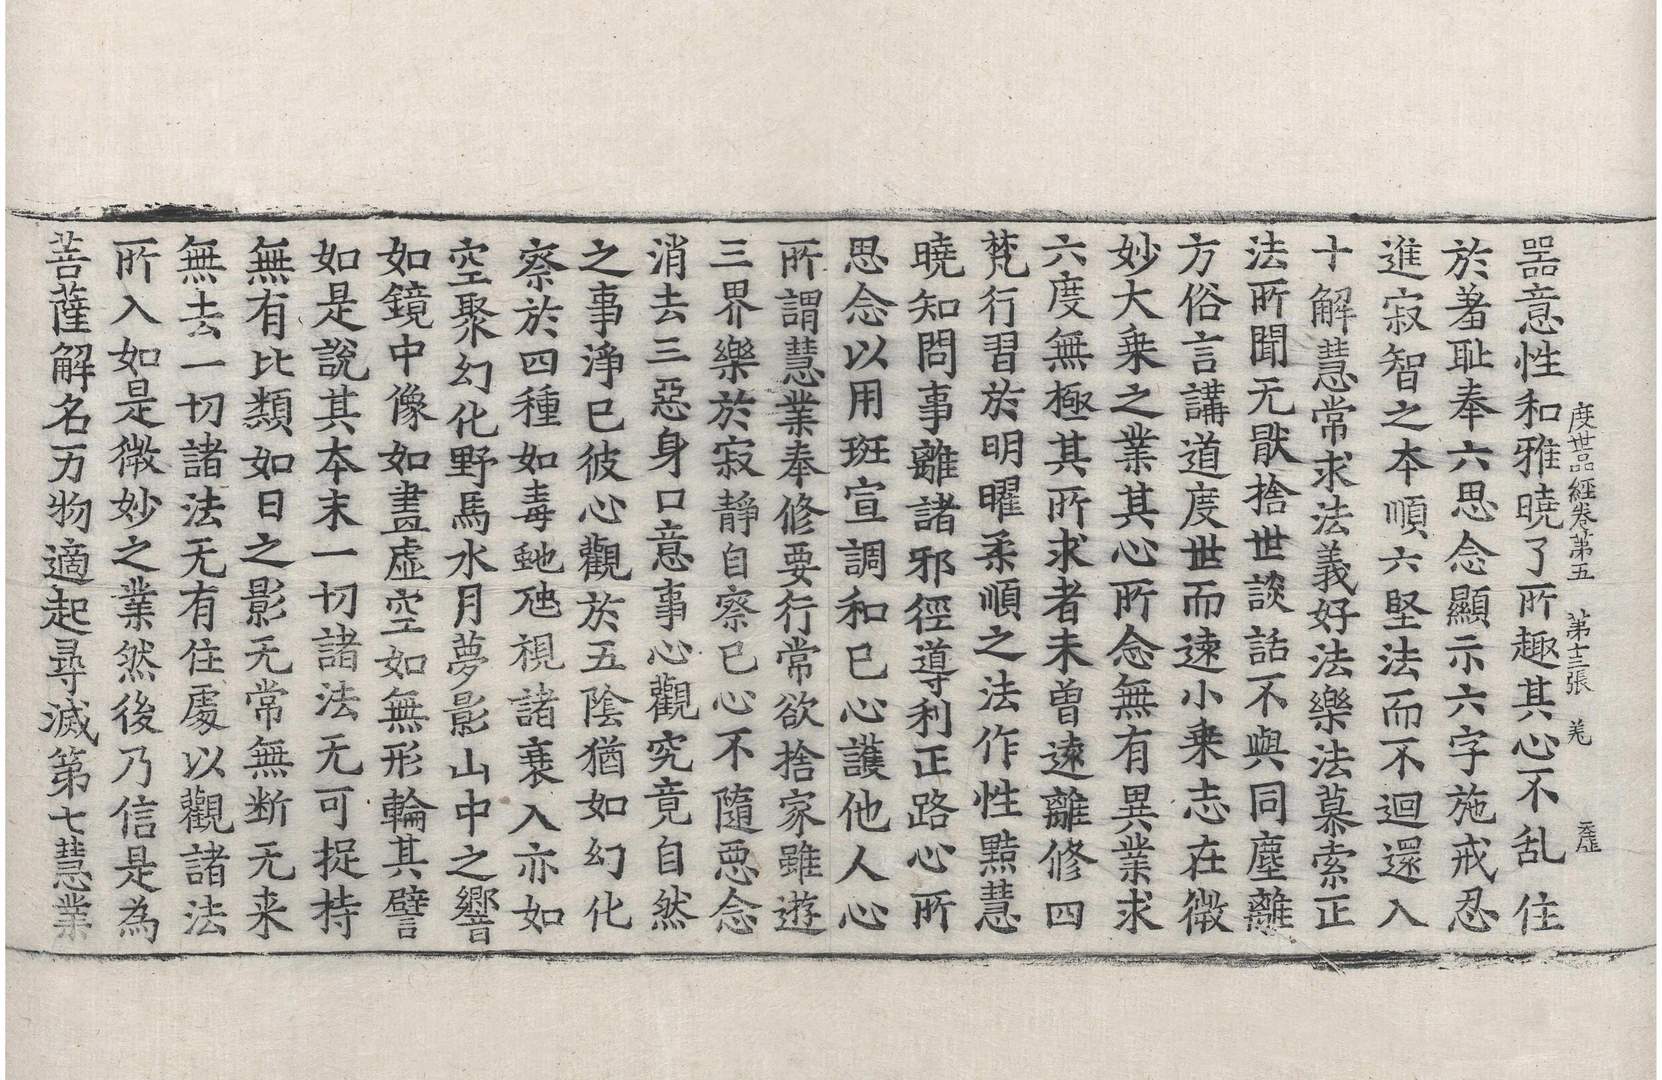 度世品經卷第五　第十三張　羌
噐意性和雅曉了所趣其心不乱住
於羞耻奉六思念顯示六字施戒忍
進寂智之本順六堅法而不迴還入
十解慧常求法義好法樂法慕索正
法所聞无猒捨世談話不與同塵離
方俗言講道度世而逺小乗志在微
妙大乗之業其心所念無有異業求
六度無極其所求者未曽逺離修四
梵行習於明曜柔順之法作性黠慧
曉知問事離諸邪徑導利正路心所
思念以用班宣調和已心護他人心
所謂慧業奉修要行常欲捨家雖遊
三界樂於寂靜自察已心不隨惡念
消去三惡身口意事心觀究竟自然
之事淨已彼心觀於五陰猶如幻化
察於四種如毒虵虺視諸衰入亦如
空聚幻化野馬水月夢影山中之響
如鏡中像如畫虛空如無形輪其譬
如是說其本末一切諸法无可捉持
無有比類如日之影无常無断无来
無去一切諸法无有住處以觀諸法
所入如是微妙之業然後乃信是為
菩薩解名万物適起尋滅第七慧業